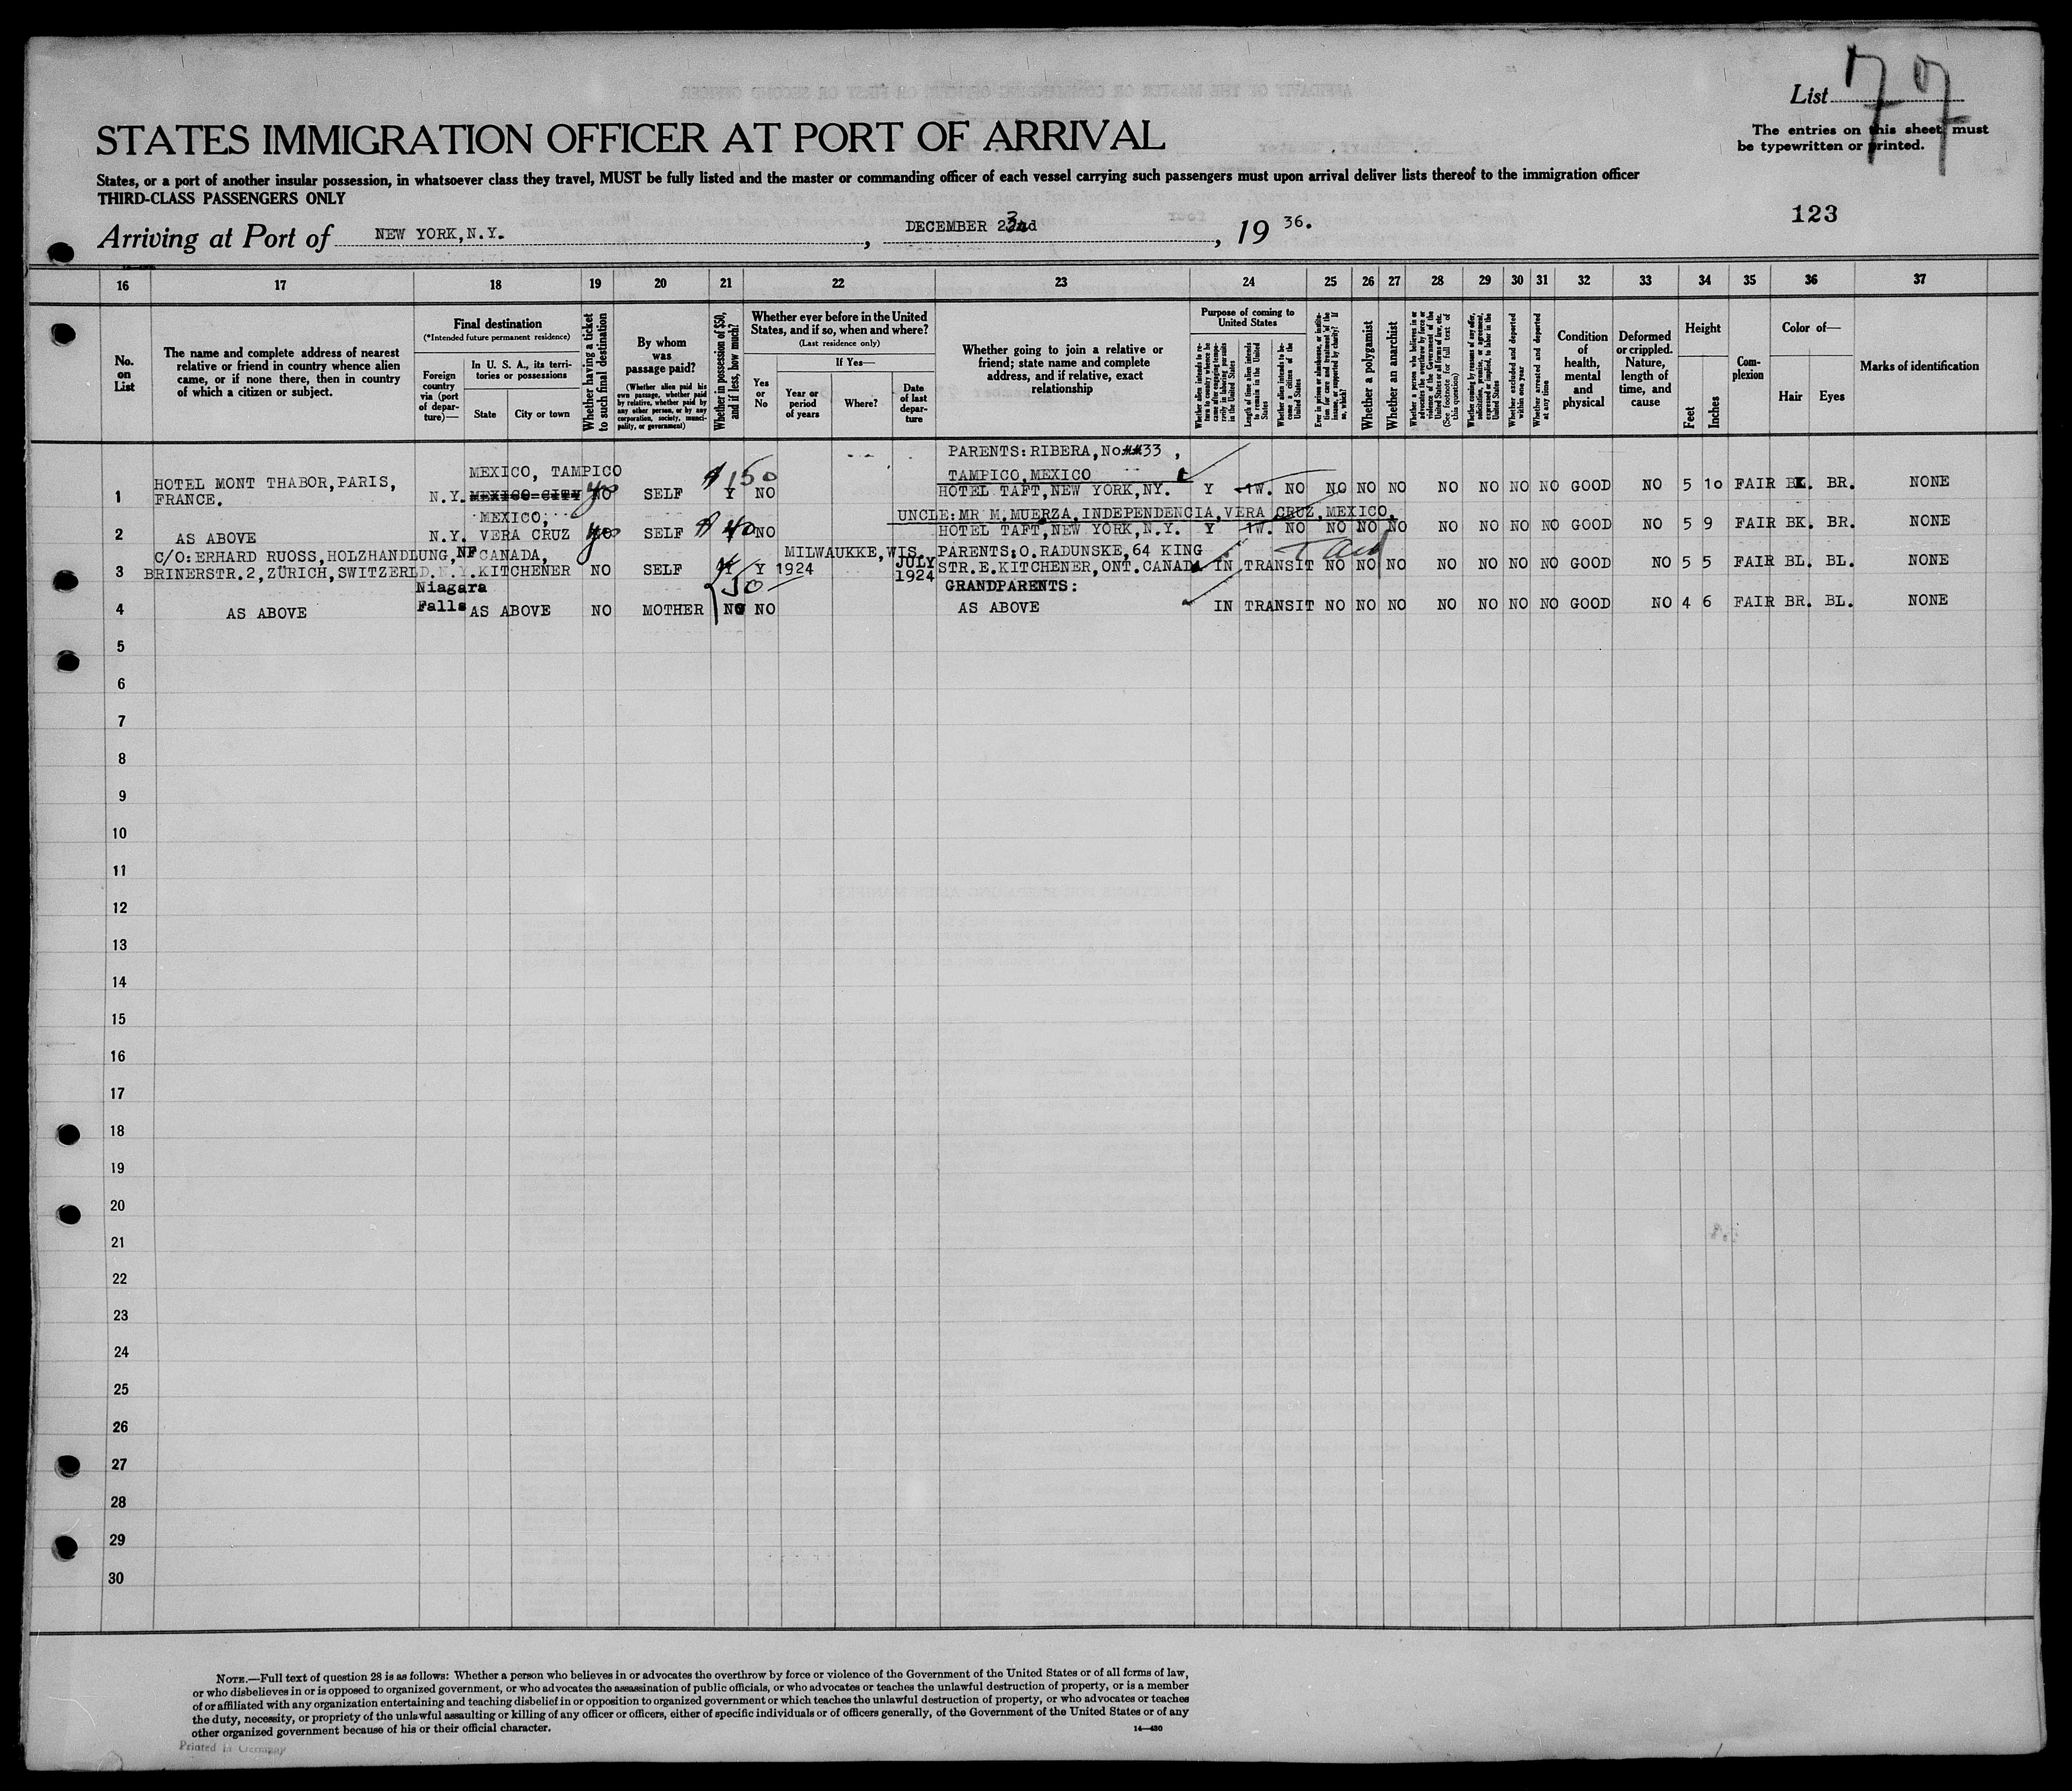 List 77
The entries on this sheet must
be typewritten or printed.
STATES IMMIGRATION OFFICER AT PORT OF ARRIVAL
States, or a port of another insular possession, in whatsoever class they travel, MUST be fully listed and the master or commanding officer of each vessel carrying such passengers must upon arrival deliver lists thereof to the immigration officer
THIRD-CLASS PASSENGERS ONLY
123
Arriving at Port of NEW YORK,N.Y. , DECEMBER 23d , 19 36.
16 17 18 19 20 21 22 23 24 25 26 27 28 29 30 31 32 33 34 35 36 37
No. on List
The name and complete address of nearest
relative or friend in country whence alien
came, or if none there, then in country
of which a citizen or subject.
Final destination
(*Intended future permanent residence)
Foreign country via (port of departure)—
In U. S. A., its territories or possessions
State
City or town
Whether having a ticket to such final destination
By whom was passage paid?
(Whether alien paid his own passage, whether paid by relative, whether paid by any other person, or by any corporation, society, municipality, or government)
Whether in possession of $50, and if less, how much?
Whether ever before in the United
States, and if so, when and where?
(Last residence only)
Yes or No
If Yes—
Year or period of years
Where?
Date of last departure
Whether going to join a relative or
friend; state name and complete
address, and if relative, exact
relationship
Purpose of coming to
United States
Length of time alien intends to remain in the United States
Whether alien intends to become a citizen of the United States
Whether a polygamist
Whether an anarchist
(See footnote for full text of this question)
Whether excluded and deported within one year
Whether arrested and deported at any time
Condition of health, mental and physical
Deformed or crippled. Nature, length of time, and cause
Height
Feet
Inches
Complexion
Color of—
Hair
Eyes
Marks of identification
PARENTS:RIBERA,No 33 ,
MEXICO, TAMPICO $150 TAMPICO,MEXICO
1 HOTEL MONT THABOR,PARIS, FRANCE. N.Y. MEXICO-CITY NO yes SELF Y NO HOTEL TAFT,NEW YORK,NY. Y 1W. NO NO NO NO NO NO NO NO GOOD NO 5 10 FAIR BK. BR. NONE
MEXICO, UNCLE:MR M.MUERZA,INDEPENDENCIA,VERA CRUZ,MEXICO.
2 AS ABOVE N.Y. VERA CRUZ yes SELF $40 NO HOTEL TAFT,NEW YORK,N.Y. Y 1W. NO NO NO NO NO NO NO NO GOOD NO 5 9 FAIR BK. BR. NONE
C/O:ERHARD RUOSS,HOLZHANDLUNG, NF CANADA, MILWAUKKE,WIS. PARENTS:O.RADUNSKE,64 KING
3 BRINERSTR.2,ZÜRICH,SWITZERLD. N.Y. KITCHENER NO SELF Y Y 1924 JULY 1924 STR.E.KITCHENER,ONT.CANADA IN TRANSIT NO NO NO NO NO NO NO GOOD NO 5 5 FAIR BL. BL. NONE
Niagara 50 GRANDPARENTS:
4 AS ABOVE Falls AS ABOVE NO MOTHER NO NO AS ABOVE IN TRANSIT NO NO NO NO NO NO NO GOOD NO 4 6 FAIR BR. BL. NONE
5
6
7
8
9
10
11
12
13
14
15
16
17
18
19
20
21
22
23
24
25
26
27
28
29
30
NOTE.—Full text of question 28 is as follows: Whether a person who believes in or advocates the overthrow by force or violence of the Government of the United States or of all forms of law,
or who disbelieves in or is opposed to organized government, or who advocates the assassination of public officials, or who advocates or teaches the unlawful destruction of property, or is a member
of or affiliated with any organization entertaining and teaching disbelief in or opposition to organized government or which teaches the unlawful destruction of property, or who advocates or teaches
the duty, necessity, or propriety of the unlawful assaulting or killing of any officer or officers, either of specific individuals or of officers generally, of the Government of the United States or of any
other organized government because of his or their official character.
14—430
Printed in Germany